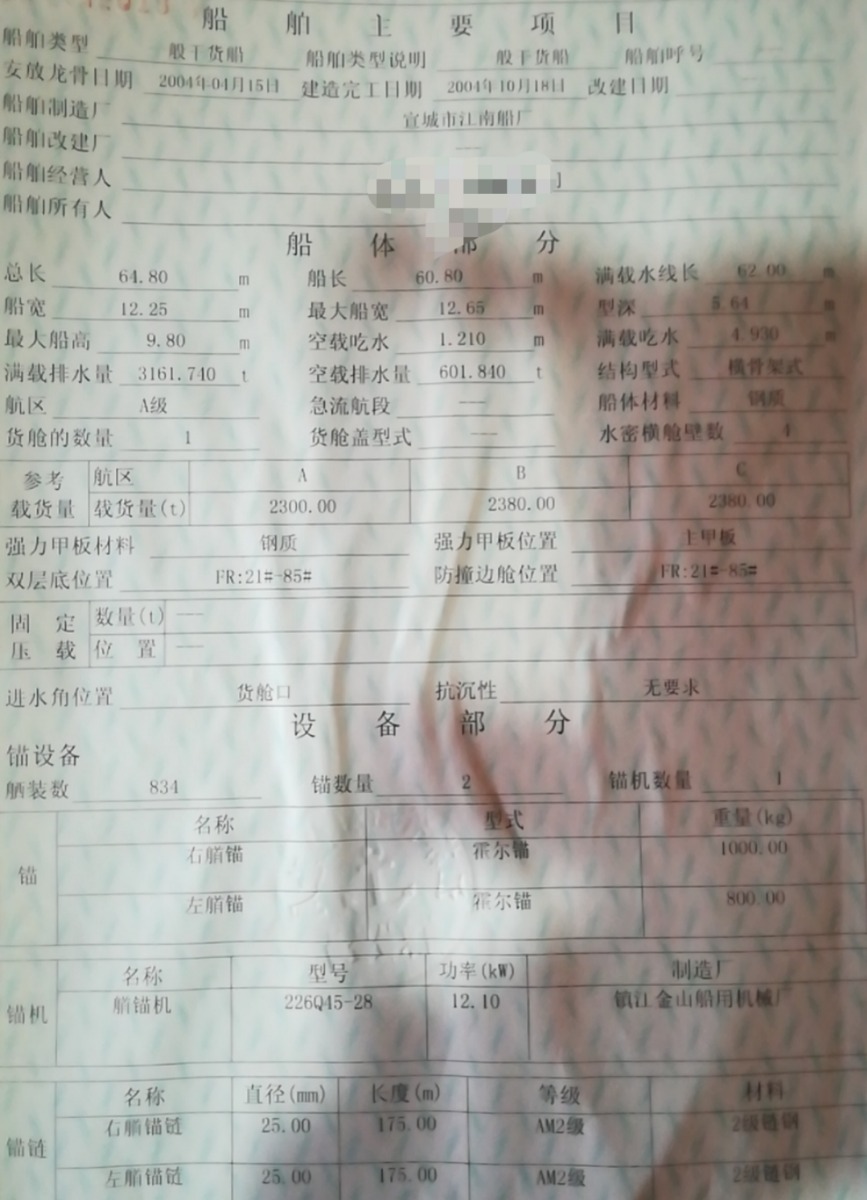 船舶主要项目
船舶类型 一般干货船 船舶类型说明 一般干货船 船舶呼号 ——
安放龙骨日期 2004年04月15日 建造完工日期 2004年10月18日 改建日期 ——
船舶制造厂 宣城市江南船厂
船舶改建厂 ——
船舶经营人
船舶所有人
船体部分
总长 64.80 m 船长 60.80 m 满载水线长 62.00 m
船宽 12.25 m 最大船宽 12.65 m 型深 5.64 m
最大船高 9.80 m 空载吃水 1.210 m 满载吃水 4.930 m
满载排水量 3161.740 t 空载排水量 601.840 t 结构型式 横骨架式
航区 A级 急流航段 —— 船体材料 钢质
货舱的数量 1 货舱盖型式 —— 水密横舱壁数 4
参考 航区 A B C
载货量 载货量(t) 2300.00 2380.00 2380.00
强力甲板材料 钢质 强力甲板位置 主甲板
双层底位置 FR:21#-85# 防撞边舱位置 FR:21#-85#
固定 数量(t) ——
压载 位置 ——
进水角位置 货舱口 抗沉性 无要求
设备部分
锚设备
舾装数 834 锚数量 2 锚机数量 1
名称 型式 重量(kg)
锚 右艏锚 霍尔锚 1000.00
左艏锚 霍尔锚 800.00
名称 型号 功率(kW) 制造厂
锚机 艏锚机 226Q45-28 12.10 镇江金山船用机械厂
名称 直径(mm) 长度(m) 等级 材料
锚链 右艏锚链 25.00 175.00 AM2级 2级链钢
左艏锚链 25.00 175.00 AM2级 2级链钢